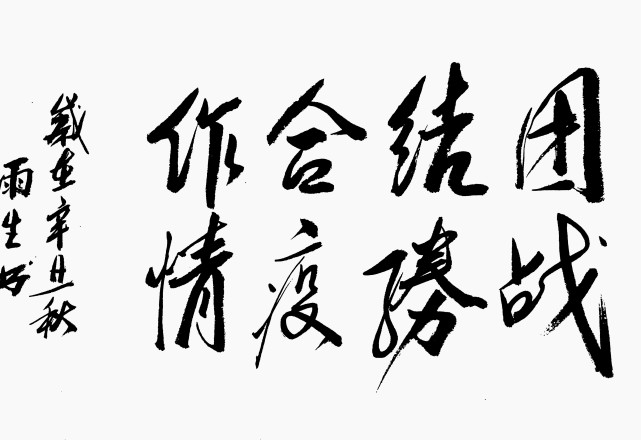 团结合作
战勝疫情
歲在辛丑秋
雨生书